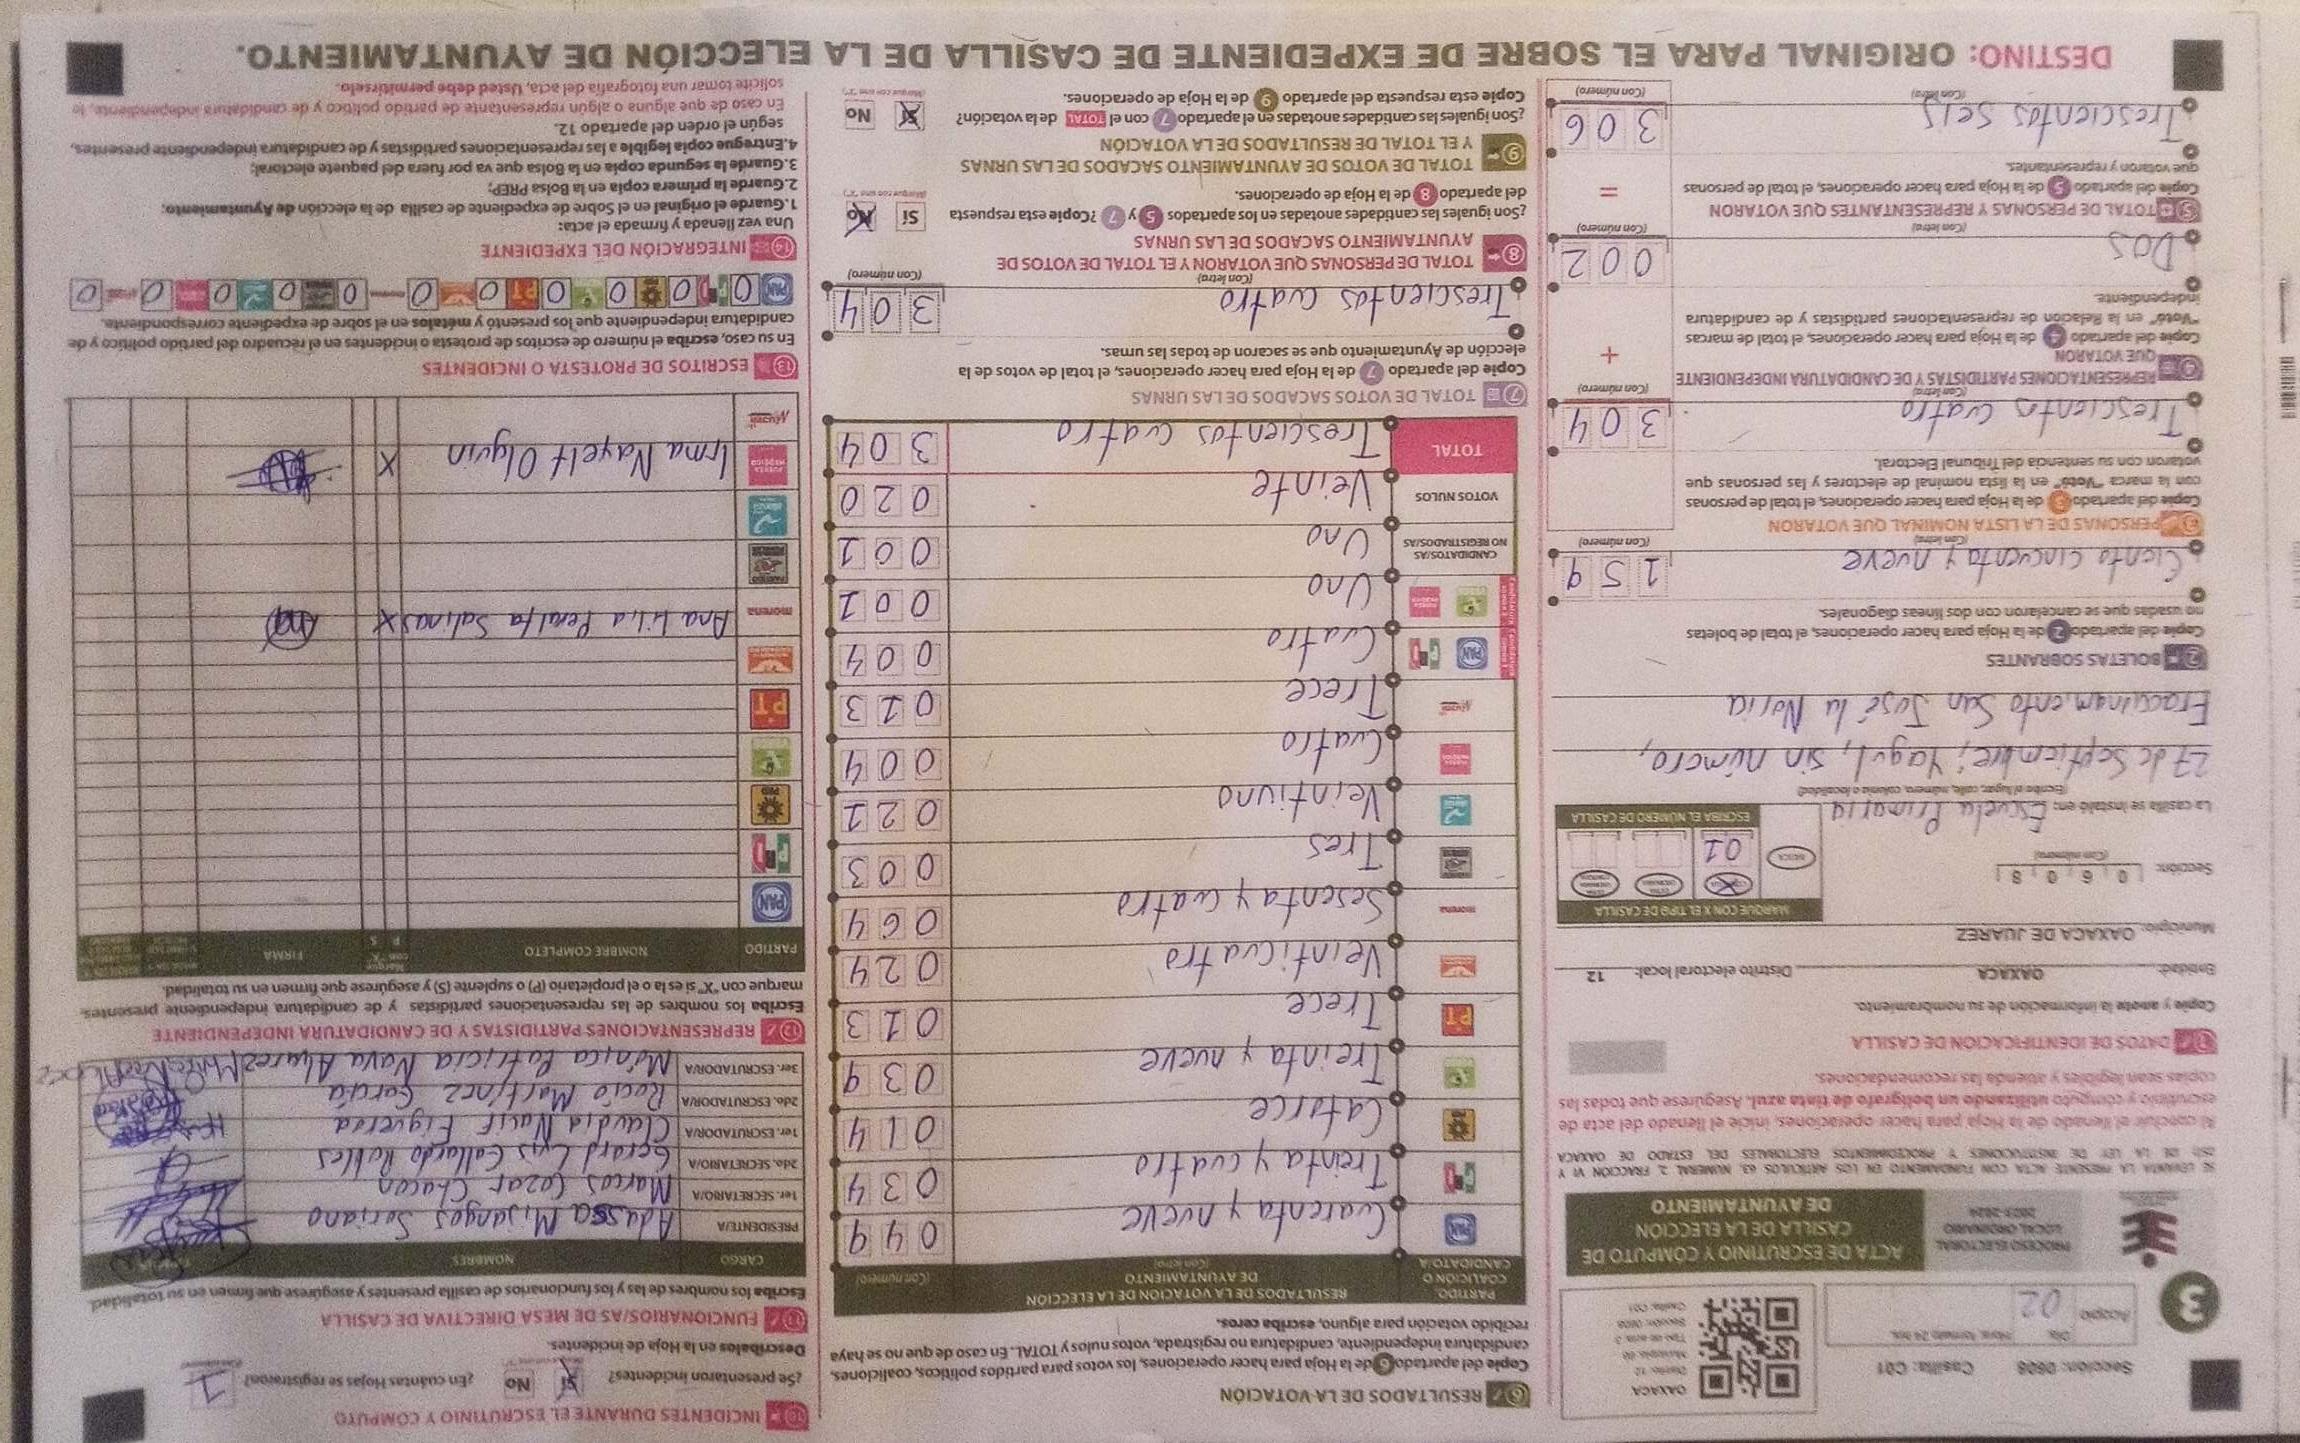 3
Acopio 02
Día
Hora: formato 24 hrs.
Sección: 0608 Casilla: C01
OAXACA
Distrito: 12
Tipo de acta: 3
Sección: 0608
Casilla: C01
PROCESO ELECTORAL
LOCAL ORDINARIO
2023-2024
ACTA DE ESCRUTINIO Y CÓMPUTO DE
CASILLA DE LA ELECCIÓN
DE AYUNTAMIENTO
SE LEVANTA LA PRESENTE ACTA CON FUNDAMENTO EN LOS ARTÍCULOS 63, NUMERAL 2, FRACCIÓN VI Y
251 DE LA LEY DE INSTITUCIONES Y PROCEDIMIENTOS ELECTORALES DEL ESTADO DE OAXACA
Al concluir el llenado de la Hoja para hacer operaciones, inicie el llenado del acta de
escrutinio y cómputo utilizando un bolígrafo de tinta azul. Asegúrese que todas las
copias sean legibles y atienda las recomendaciones.
1 DATOS DE IDENTIFICACIÓN DE CASILLA
Copie y anote la información de su nombramiento.
Entidad: OAXACA Distrito electoral local: 12
Municipio: OAXACA DE JUAREZ
Sección: 0608
(Con número)
MARQUE CON X EL TIPO DE CASILLA
BÁSICA
01
ESCRIBA EL NÚMERO DE CASILLA
La casilla se instaló en: Escuela Primaria
(Escriba el lugar, calle, número, colonia o localidad)
27 de Septiembre; Yagul, sin número,
Fraccionamiento San José la Noria
2 BOLETAS SOBRANTES
Copie del apartado 2 de la Hoja para hacer operaciones, el total de boletas
no usadas que se cancelaron con dos líneas diagonales.
Ciento cincuenta y nueve 159
(Con letra) (Con número)
3 PERSONAS DE LA LISTA NOMINAL QUE VOTARON
Copie del apartado 3 de la Hoja para hacer operaciones, el total de personas
con la marca "Votó" en la lista nominal de electores y las personas que
votaron con su sentencia del Tribunal Electoral.
Trescientos cuatro 304
(Con letra) (Con número)
4 REPRESENTACIONES PARTIDISTAS Y DE CANDIDATURA INDEPENDIENTE
QUE VOTARON
Copie del apartado 4 de la Hoja para hacer operaciones, el total de marcas
"Votó" en la Relación de representaciones partidistas y de candidatura
independiente.
+
Dos 002
(Con letra) (Con número)
5 TOTAL DE PERSONAS Y REPRESENTANTES QUE VOTARON
Copie del apartado 5 de la Hoja para hacer operaciones, el total de personas
que votaron y representantes.
=
Trescientos seis 306
(Con letra) (Con número)
6 RESULTADOS DE LA VOTACIÓN
Copie del apartado 6 de la Hoja para hacer operaciones, los votos para partidos políticos, coaliciones,
candidatura independiente, candidatura no registrada, votos nulos y TOTAL. En caso de que no se haya
recibido votación para alguno, escriba ceros.
PARTIDO, COALICIÓN O CANDIDATO/A
RESULTADOS DE LA VOTACIÓN DE LA ELECCIÓN DE AYUNTAMIENTO
(Con letra) (Con número)
PAN Cuarenta y nueve 049
PRI Treinta y cuatro 034
PRD Catorce 014
Treinta y nueve 039
PT Trece 013
Veinticuatro 024
morena Sesenta y cuatro 064
Tres 003
Veintiuno 021
FUERZA MÉXICO Cuatro 004
Trece 013
PAN PRI Cuatro 004
FUERZA MÉXICO Uno 001
CANDIDATOS/AS NO REGISTRADOS/AS Uno 001
VOTOS NULOS Veinte 020
TOTAL Trescientos cuatro 304
7 TOTAL DE VOTOS SACADOS DE LAS URNAS
Copie del apartado 7 de la Hoja para hacer operaciones, el total de votos de la
elección de Ayuntamiento que se sacaron de todas las urnas.
Trescientos cuatro 304
(Con letra) (Con número)
8 TOTAL DE PERSONAS QUE VOTARON Y EL TOTAL DE VOTOS DE
AYUNTAMIENTO SACADOS DE LAS URNAS
¿Son iguales las cantidades anotadas en los apartados 5 y 7? Copie esta respuesta
del apartado 8 de la Hoja de operaciones.
SÍ No
(Marque con una "X")
9 TOTAL DE VOTOS DE AYUNTAMIENTO SACADOS DE LAS URNAS
Y EL TOTAL DE RESULTADOS DE LA VOTACIÓN
¿Son iguales las cantidades anotadas en el apartado 7 con el TOTAL de la votación?
Copie esta respuesta del apartado 9 de la Hoja de operaciones.
SÍ No
(Marque con una "X")
10 INCIDENTES DURANTE EL ESCRUTINIO Y CÓMPUTO
¿Se presentaron incidentes? SÍ No ¿En cuántas Hojas se registraron? 1
Descríbalos en la Hoja de incidentes.
11 FUNCIONARIOS/AS DE MESA DIRECTIVA DE CASILLA
Escriba los nombres de las y los funcionarios de casilla presentes y asegúrese que firmen en su totalidad.
CARGO NOMBRES
PRESIDENTE/A Adassa Misangos Soriano
1er. SECRETARIO/A Marcos Cazar Chacon
2do. SECRETARIO/A Gerard Lyis Gallardo Robles
1er. ESCRUTADOR/A Claudia Nayif Figueroa
2do. ESCRUTADOR/A Rocío Martínez García
3er. ESCRUTADOR/A Mónica Patricia Nava Alvarez
12 REPRESENTACIONES PARTIDISTAS Y DE CANDIDATURA INDEPENDIENTE
Escriba los nombres de las representaciones partidistas y de candidatura independiente presentes,
marque con "X" si es la o el propietario (P) o suplente (S) y asegúrese que firmen en su totalidad.
PARTIDO NOMBRE COMPLETO Marque con "X" P S FIRMA
PAN
PRI
PRD
PT
morena Ana Lilia Peralta Salinas X
FUERZA MÉXICO Irma Nayelt Olguin X
13 ESCRITOS DE PROTESTA O INCIDENTES
En su caso, escriba el número de escritos de protesta o incidentes en el recuadro del partido político y de
candidatura independiente que los presentó y métalos en el sobre de expediente correspondiente.
PAN 0 PRI 0 PRD 0 0 PT 0 0 morena 0 0 0 0 0
14 INTEGRACIÓN DEL EXPEDIENTE
Una vez llenada y firmada el acta:
1. Guarde el original en el Sobre de expediente de casilla de la elección de Ayuntamiento;
2. Guarde la primera copia en la Bolsa PREP;
3. Guarde la segunda copia en la Bolsa que va por fuera del paquete electoral;
4. Entregue copia legible a las representaciones partidistas y de candidatura independiente presentes,
según el orden del apartado 12.
En caso de que alguna o algún representante de partido político y de candidatura independiente, le
solicite tomar una fotografía del acta, Usted debe permitírselo.
DESTINO: ORIGINAL PARA EL SOBRE DE EXPEDIENTE DE CASILLA DE LA ELECCIÓN DE AYUNTAMIENTO.